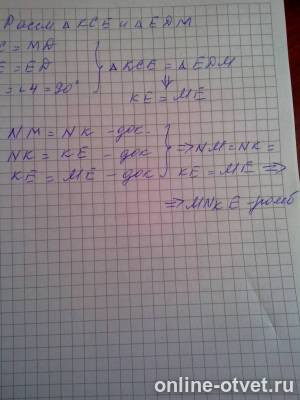 Рассм. ΔKCE и ΔEDM
C = MD
E = ED
= ∠4 = 90°
ΔKCE = ΔEDM
⇓
KE = ME
NM = NK - док.
NK = KE - док
KE = ME - док
⇒ NM = NK =
KE = ME ⇒
⇒ MNKE - ромб
online-otvet.ru